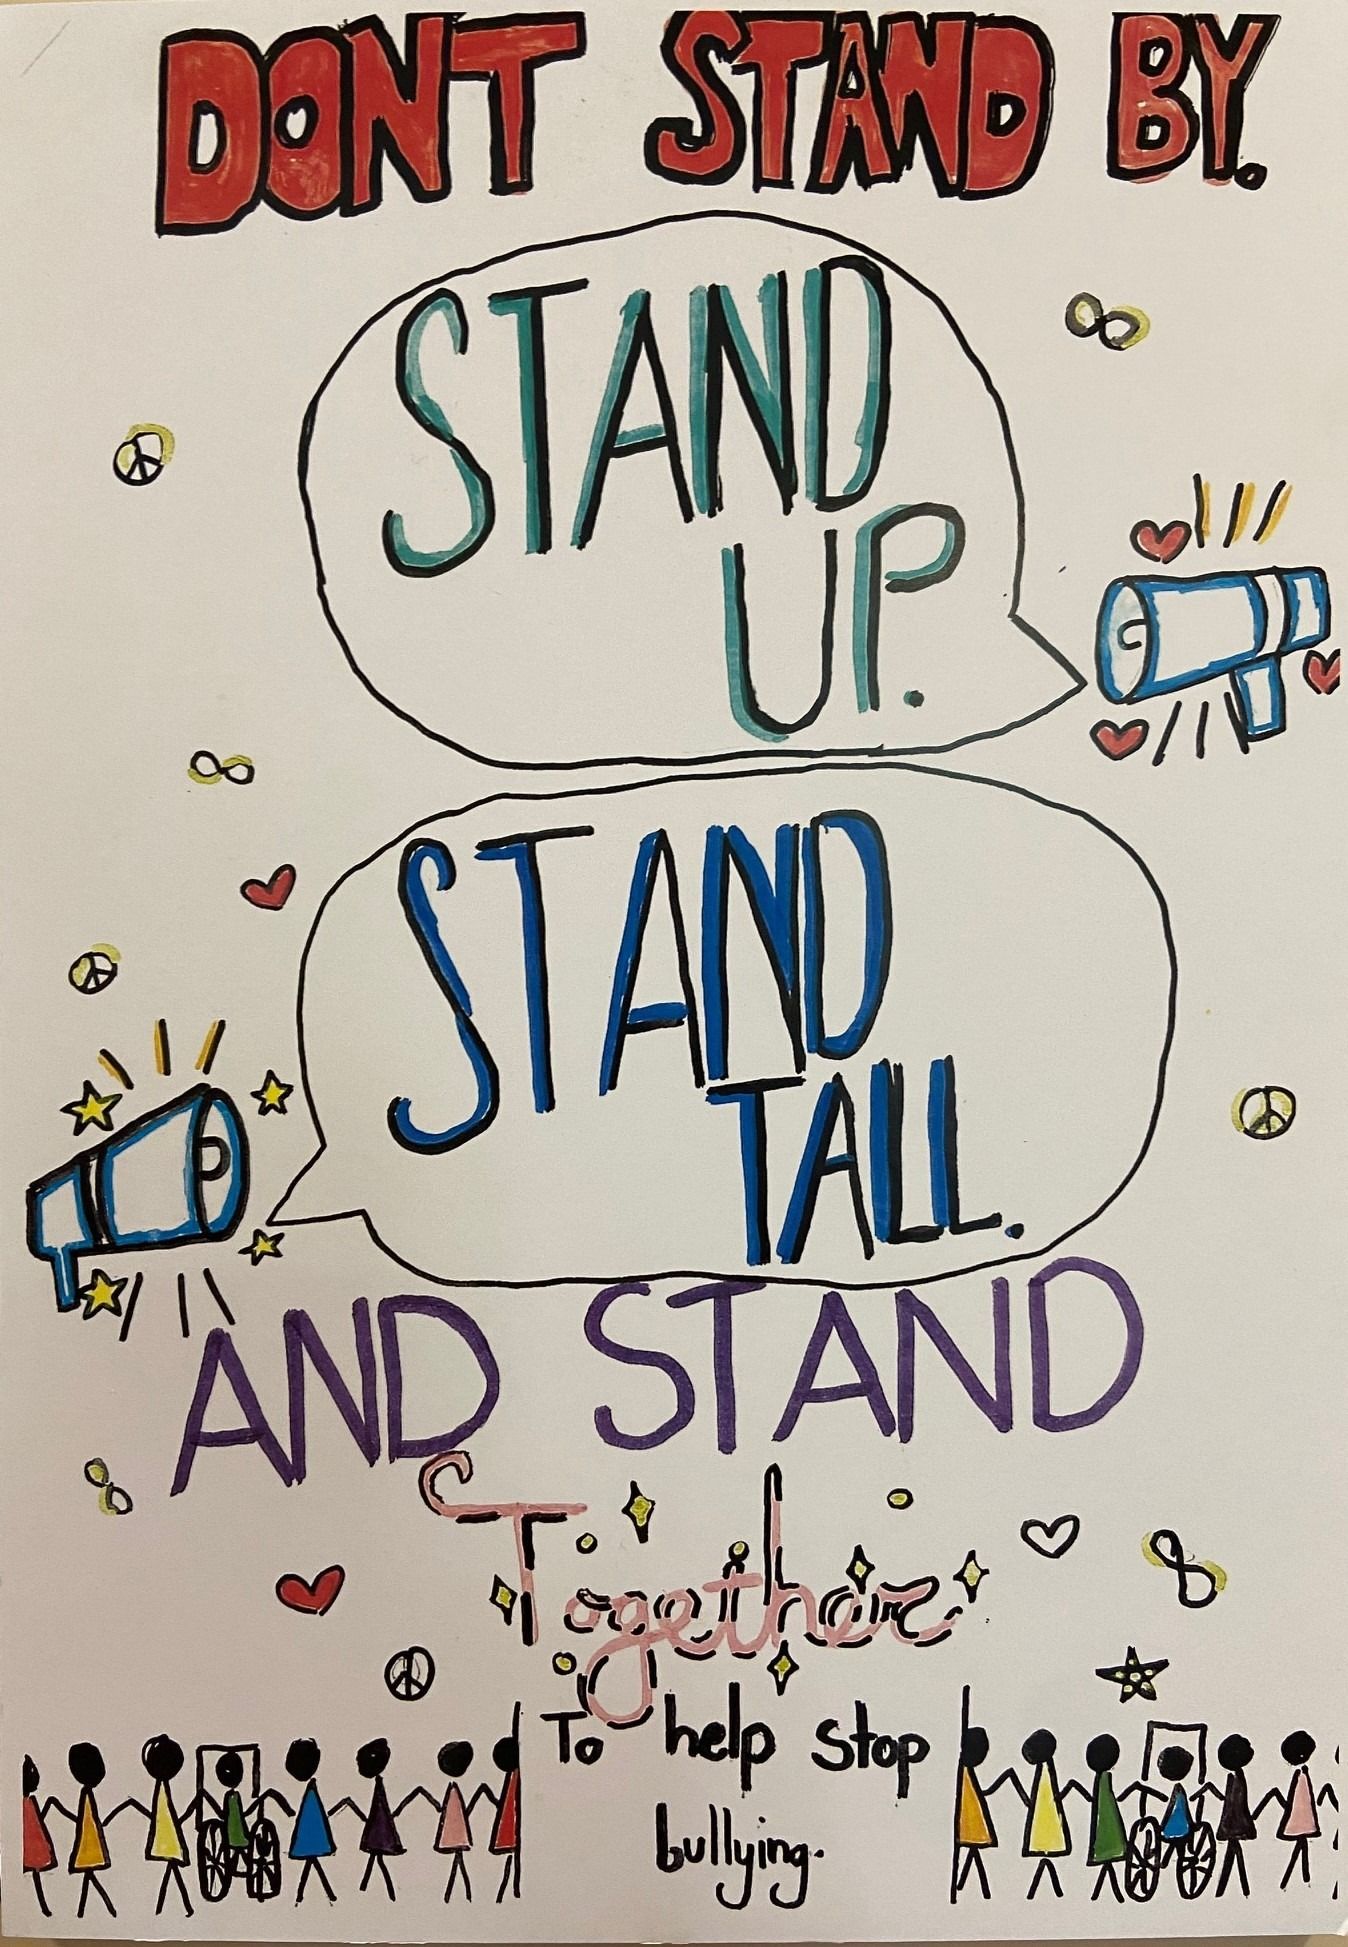 DONT STAND BY.
STAND
UP.
STAND
TALL.
AND STAND
Together
To help stop
bullying.